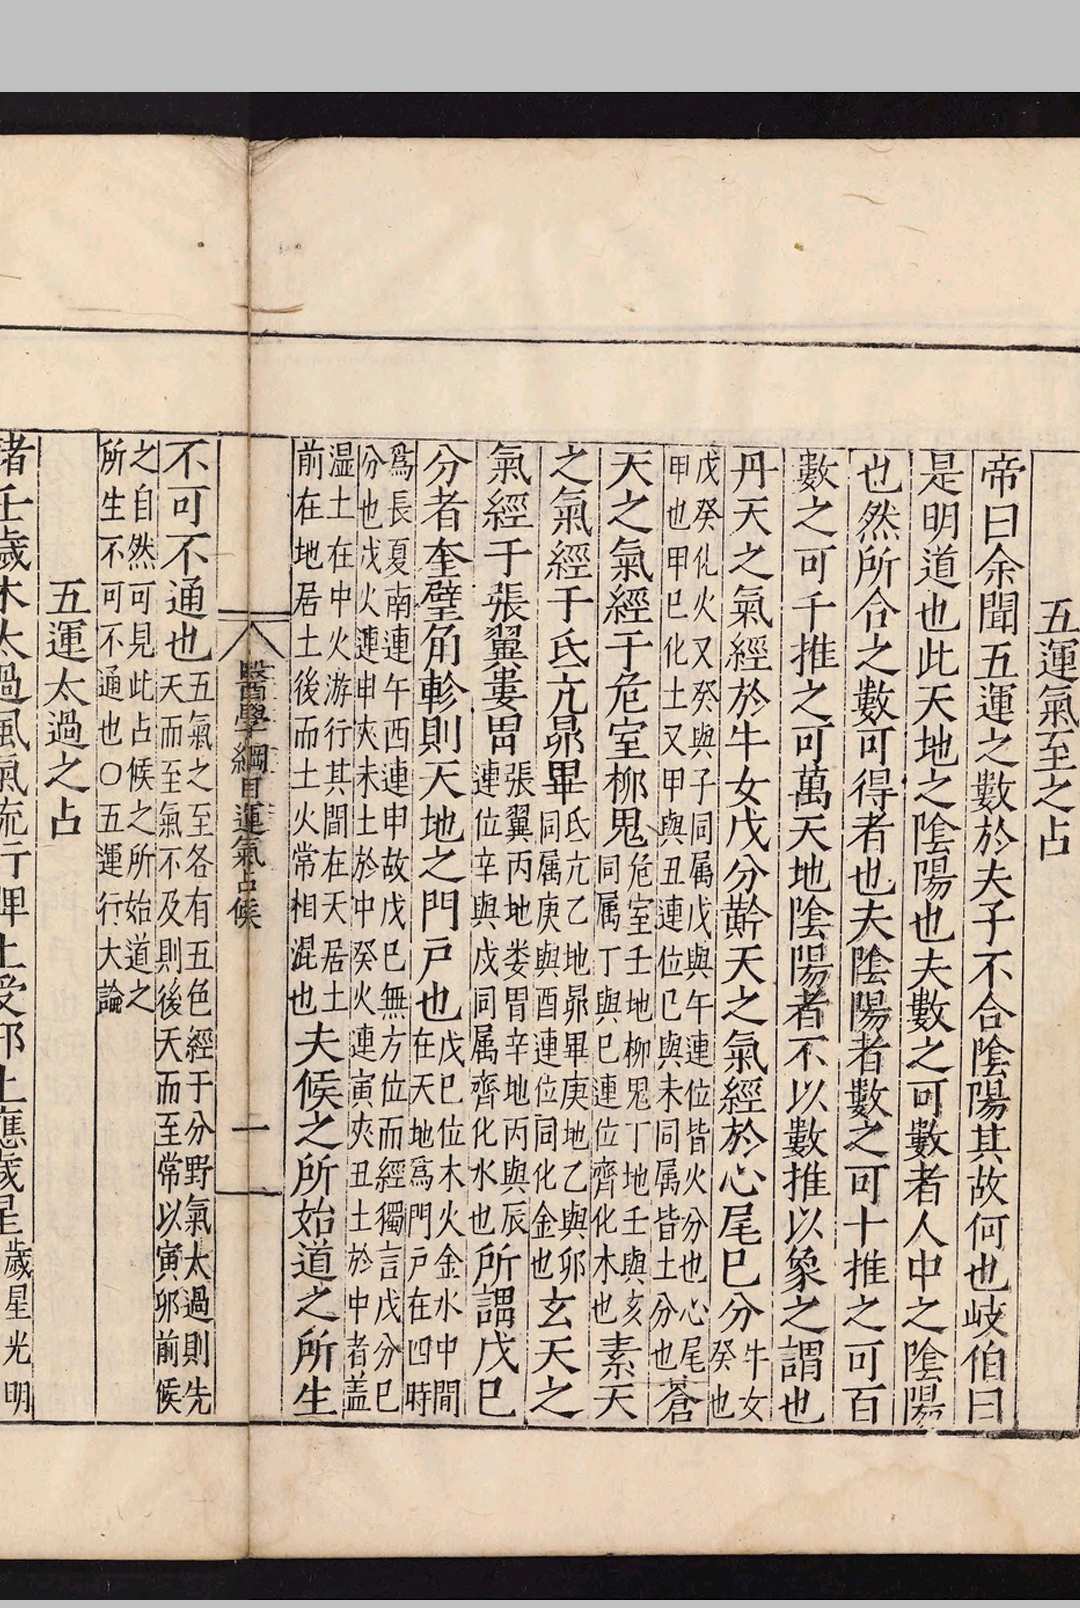 五運氣至之占
帝曰余聞五運之數於夫子不合陰陽其故何也岐伯曰
是明道也此天地之陰陽也夫數之可數者人中之陰陽
也然所合之數可得者也夫陰陽者數之可十推之可百
數之可千推之可萬天地陰陽者不以數推以象之謂也
丹天之氣經於牛女戊分黅天之氣經於心尾巳分牛女
癸也
戊癸化火又癸與子同属戊與午連位皆火分也心尾
甲也甲巳化土又甲與丑連位巳與未同属皆土分也蒼
天之氣經于危室柳鬼危室壬地柳鬼丁地壬與亥
同属丁與巳連位齊化木也素天
之氣經于氐亢昴畢氐亢乙地昴畢庚地乙與卯
同属庚與酉連位同化金也玄天之
氣經于張翼婁胃張翼丙地娄胃辛地丙與辰
連位辛與戌同属齊化水也所謂戊巳
分者奎璧角軫則天地之門戶也戊巳位木火金水中間
在天地爲門戶在四時
爲長夏南連午西連申故戊巳無方位而經獨言戊分巳
分也戊火連申夾未土於中癸火連寅夾丑土於中者蓋
湿土在中火游行其間在天居土
前在地居土後而土火常相混也夫候之所始道之所生
醫學綱目運氣占候 一
不可不通也五氣之至各有五色經于分野氣太過則先
天而至氣不及則後天而至常以寅卯前候
之自然可見此占候之所始道之
所生不可不通也○五運行大論
五運太過之占
諸壬歲木太過風氣流行脾土受邪上應歲星歲星光明